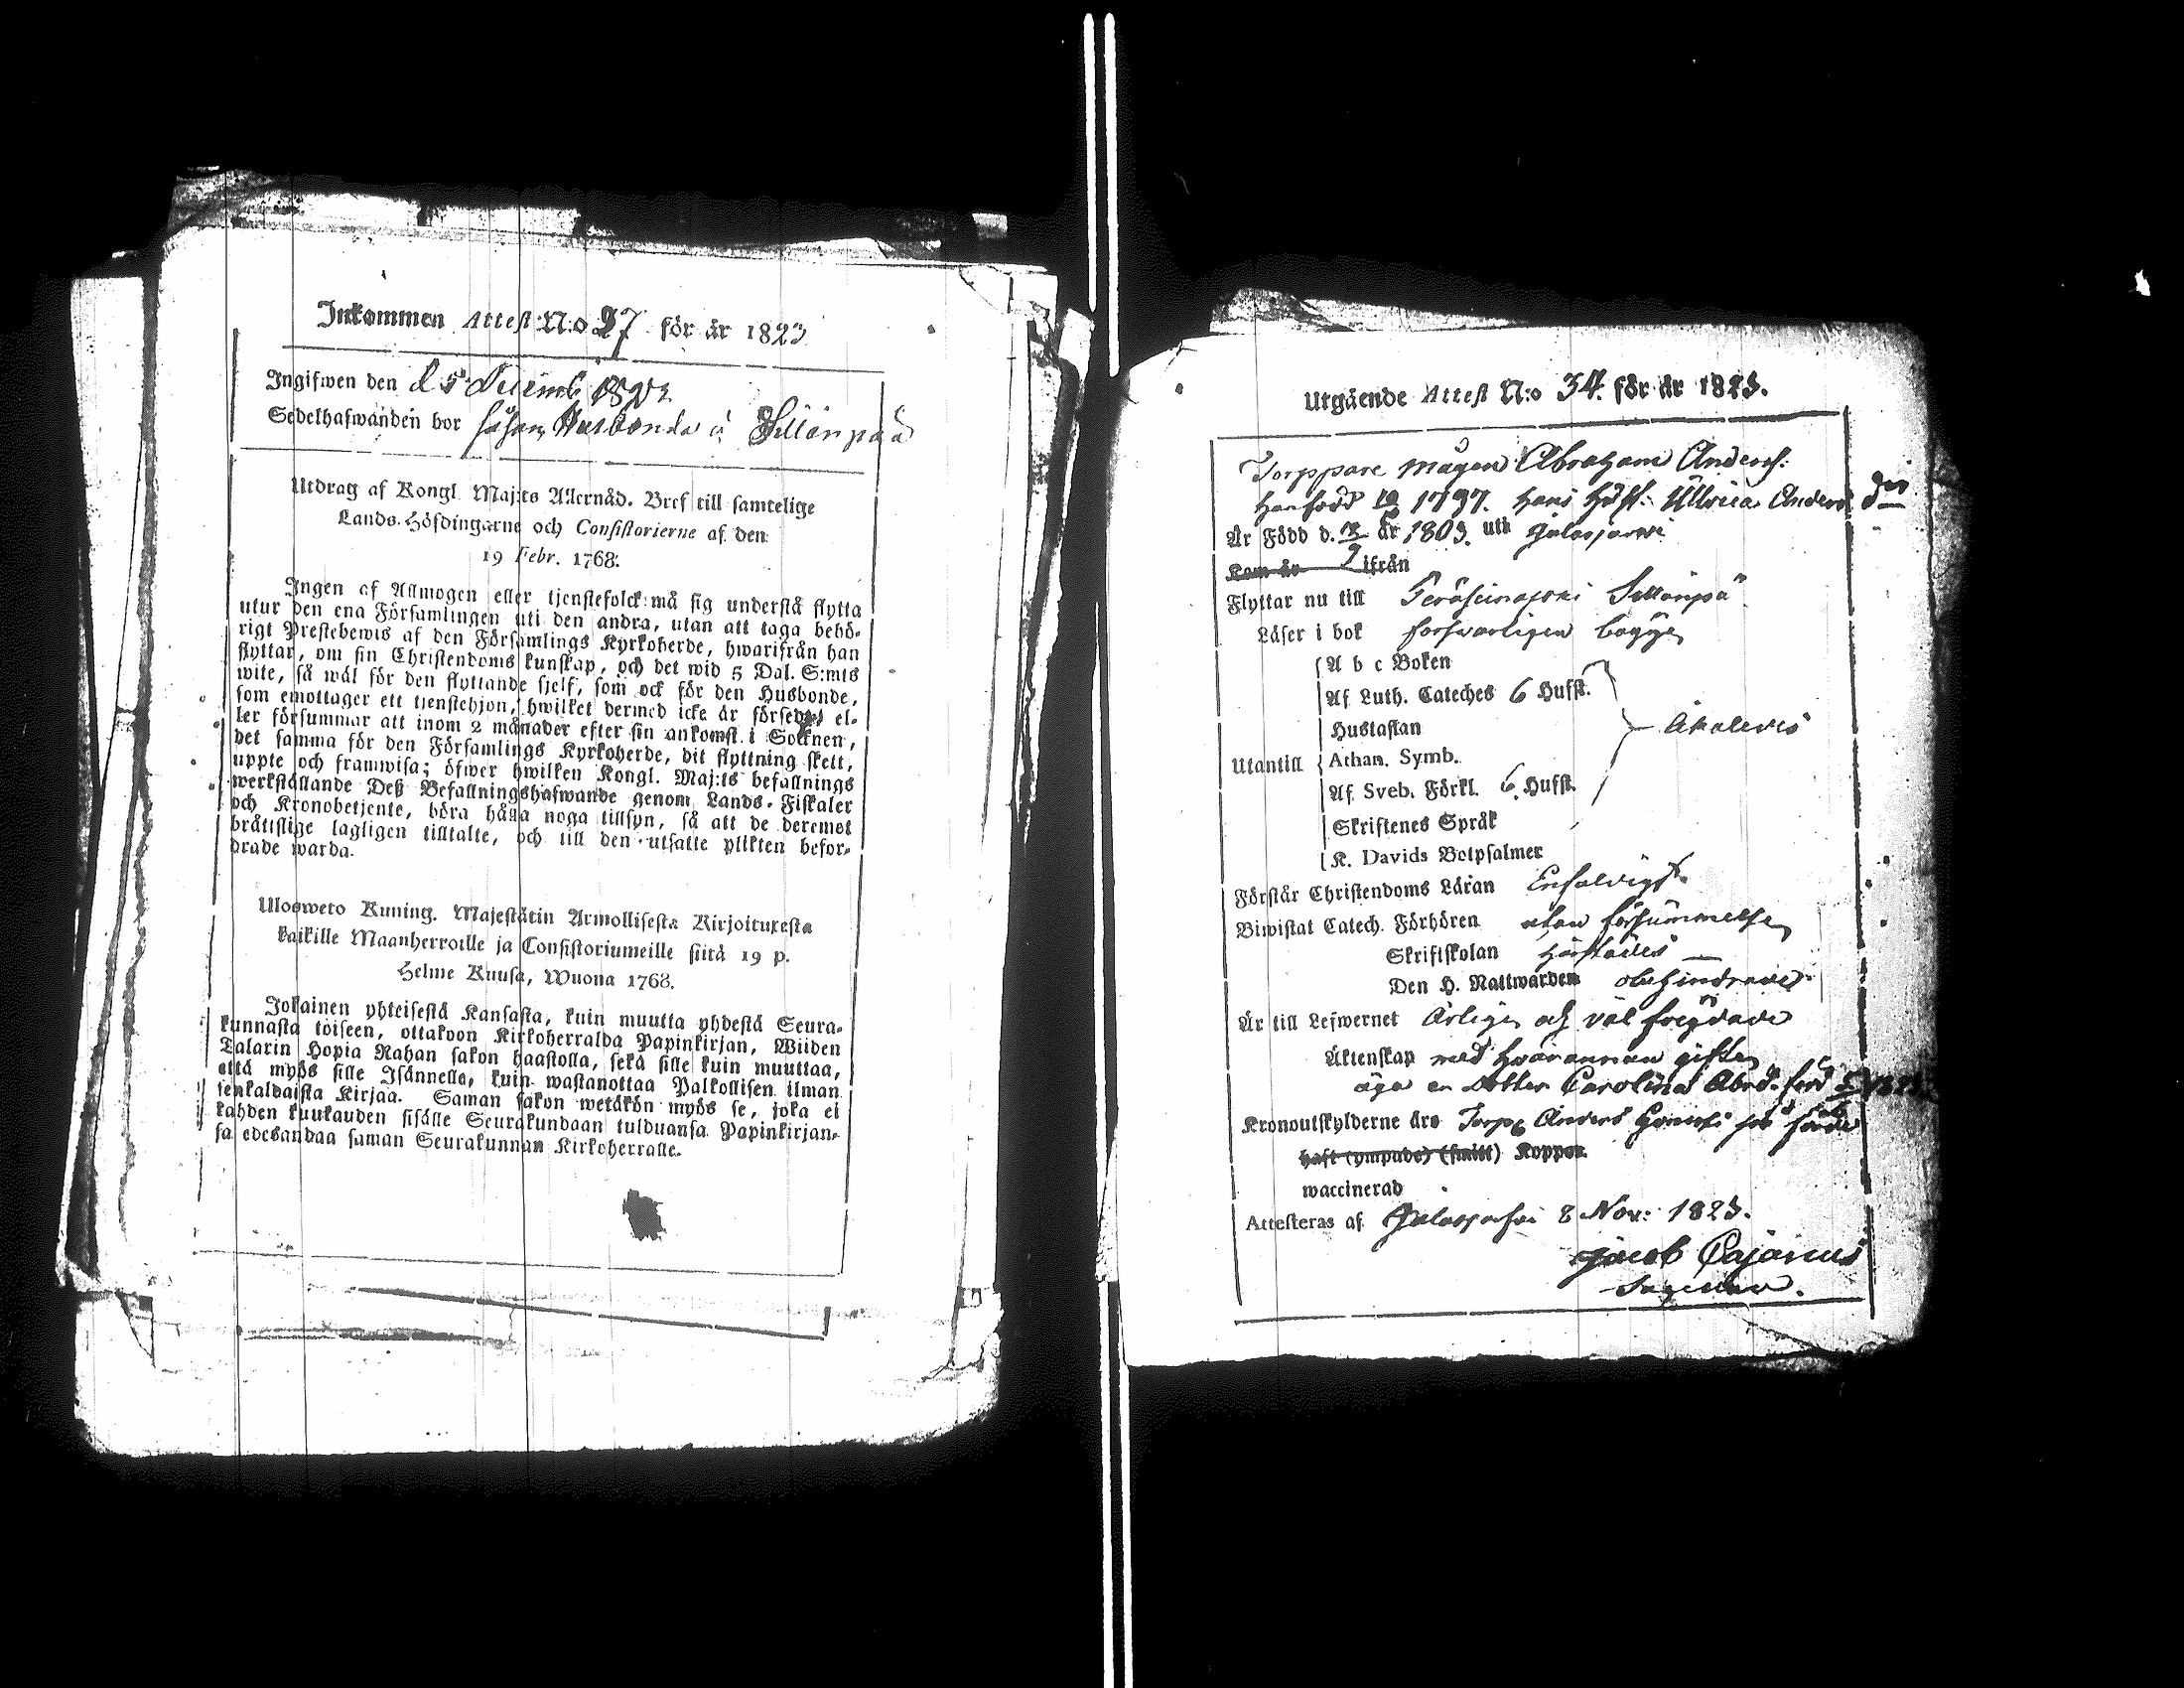 Inkommen Attest N:o 27 för år 1823
Ingifwen den d 5 Decemb 1823
Sedelhafwanden bor såsom Husbonde å Sillanpää
Utdrag af Kongl. Maj:ts Allernåd. Bref till samtelige
Lands-Höfdingarne och Consistorierne af den
19 Febr. 1768.
Ingen af Allmogen eller tjenstefolck må sig understå flytta
utur den ena Församlingen uti den andra, utan att taga behö-
rigt Prestebewis af den Församlings Kyrkoherde, hwarifrån han
flyttar, om sin Christendoms kunskap, och det wid 5 Dal. S:mts
wite, så wäl för den flyttande sjelf, som ock för den Husbonde,
som emottager ett tjenstehjon, hwilket dermed icke är försedt, el-
ler försummar att inom 2 månader efter sin ankomst i Socknen,
det samma för den Församlings Kyrkoherde, dit flyttning skett,
uppte och framwisa; öfwer hwilken Kongl. Maj:ts befallnings
werkställande Deß Befallningshafwande genom Lands-Fiskaler
och Kronobetjente, böra hålla noga tillsyn, så att de deremot
bråttslige lagligen tilltalte, och till den utsatte plikten befor-
drade warda.
Ulosweto Kuning. Majestätin Armollisesta Kirjoituxesta
kaikille Maanherroille ja Consistoriumeille siitä 19 p.
Helme Kuusa, Wuona 1768.
Jokainen yhteisestä Kansasta, kuin muutta yhdestä Seura-
kunnasta toiseen, ottakoon Kirkoherralda Papinkirjan, Wiiden
Talarin Hopia Rahan sakon haastolla, sekä sille kuin muuttaa,
että myös sille Isännelle, kuin wastanottaa Palkollisen ilman
senkaldaista Kirjaa. Saman sakon wetäkön myös se, joka ei
kahden kuukauden sisälle Seurakundaan tulduansa Papinkirjan-
sa edesandaa saman Seurakunnan Kirkoherralle.
Utgående Attest N:o 34. för år 1823.
Torppare mågen Abraham Anders:
han född 1797. hans Hust: Ullrica Anders dr
Är Född d. 12/9 år 1803. uti Jalasjarvi
Kom år ifrån
Flyttar nu till Peräseinäjoki Sillanpä
Läser i bok forsvarligen begge
A b c Boken
Af Luth. Cateches 6 Hufst.
Hustaflan
Utantill Athan. Symb.
Af Sveb. Förkl. 6. Hufst.
Skriftenes Språk
K. Davids Botpsalmer
Förstår Christendoms Läran Enfaldigt.
Biwistat Catech. Förhören utan försummelse
Skriftskolan
Den H. Nattwarden obehindrade
Är till Lefwernet Ärlige och väl frejdade
Äktenskap med hvarannan gifte
äga en dotter Carolina Abrd. född
Kronoutskylderne äro Torp Anders
haft (ympade) (smitt) Koppor
waccinerad
Attesteras af Jalasjarvi 8 Nov: 1823.
Jacob Cajanus